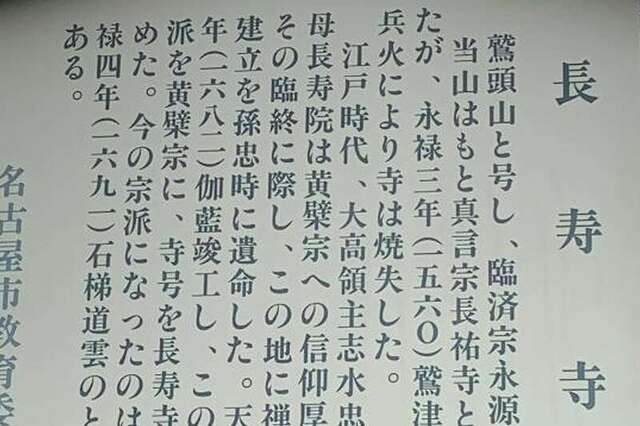 長寿寺
鷲頭山と号し、臨済宗永源
当山はもと真言宗長祐寺と
たが、永禄三年(一五六〇)鷲津
兵火により寺は焼失した。
江戸時代、大高領主志水忠
母長寿院は黄檗宗への信仰厚
その臨終に際し、この地に禅
建立を孫忠時に遺命した。天
年(一六八二)伽藍竣工し、この
派を黄檗宗に、寺号を長寿寺
めた。今の宗派になったのは
禄四年(一六九一)石梯道雲のと
ある。
名古屋市教育委